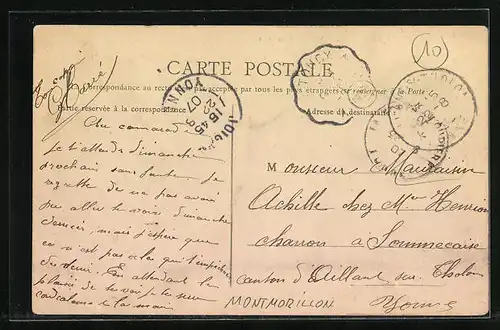 10
CARTE POSTALE
Correspondance au recto acceptée par tous les pays étrangers (se renseigner à la Poste)
Partie réservée à la correspondance
Adresse du destinataire
JOIGNY
YONNE
15 45
07
Au camarade
Je t'attends dimanche
prochain sans faute je
regrette de ne pas avoir
pu aller te voir dimanche
dernier, mais j'espère que
ce n'est pas cela qui t'empêche
de venir. En attendant le
plaisir de te voir je te serre
cordialement la main
Monsieur
Achille chez Mr Henrion
charron à Sommecaise
canton d'Aillant sur Tholon
Yonne
MONTMORILLON